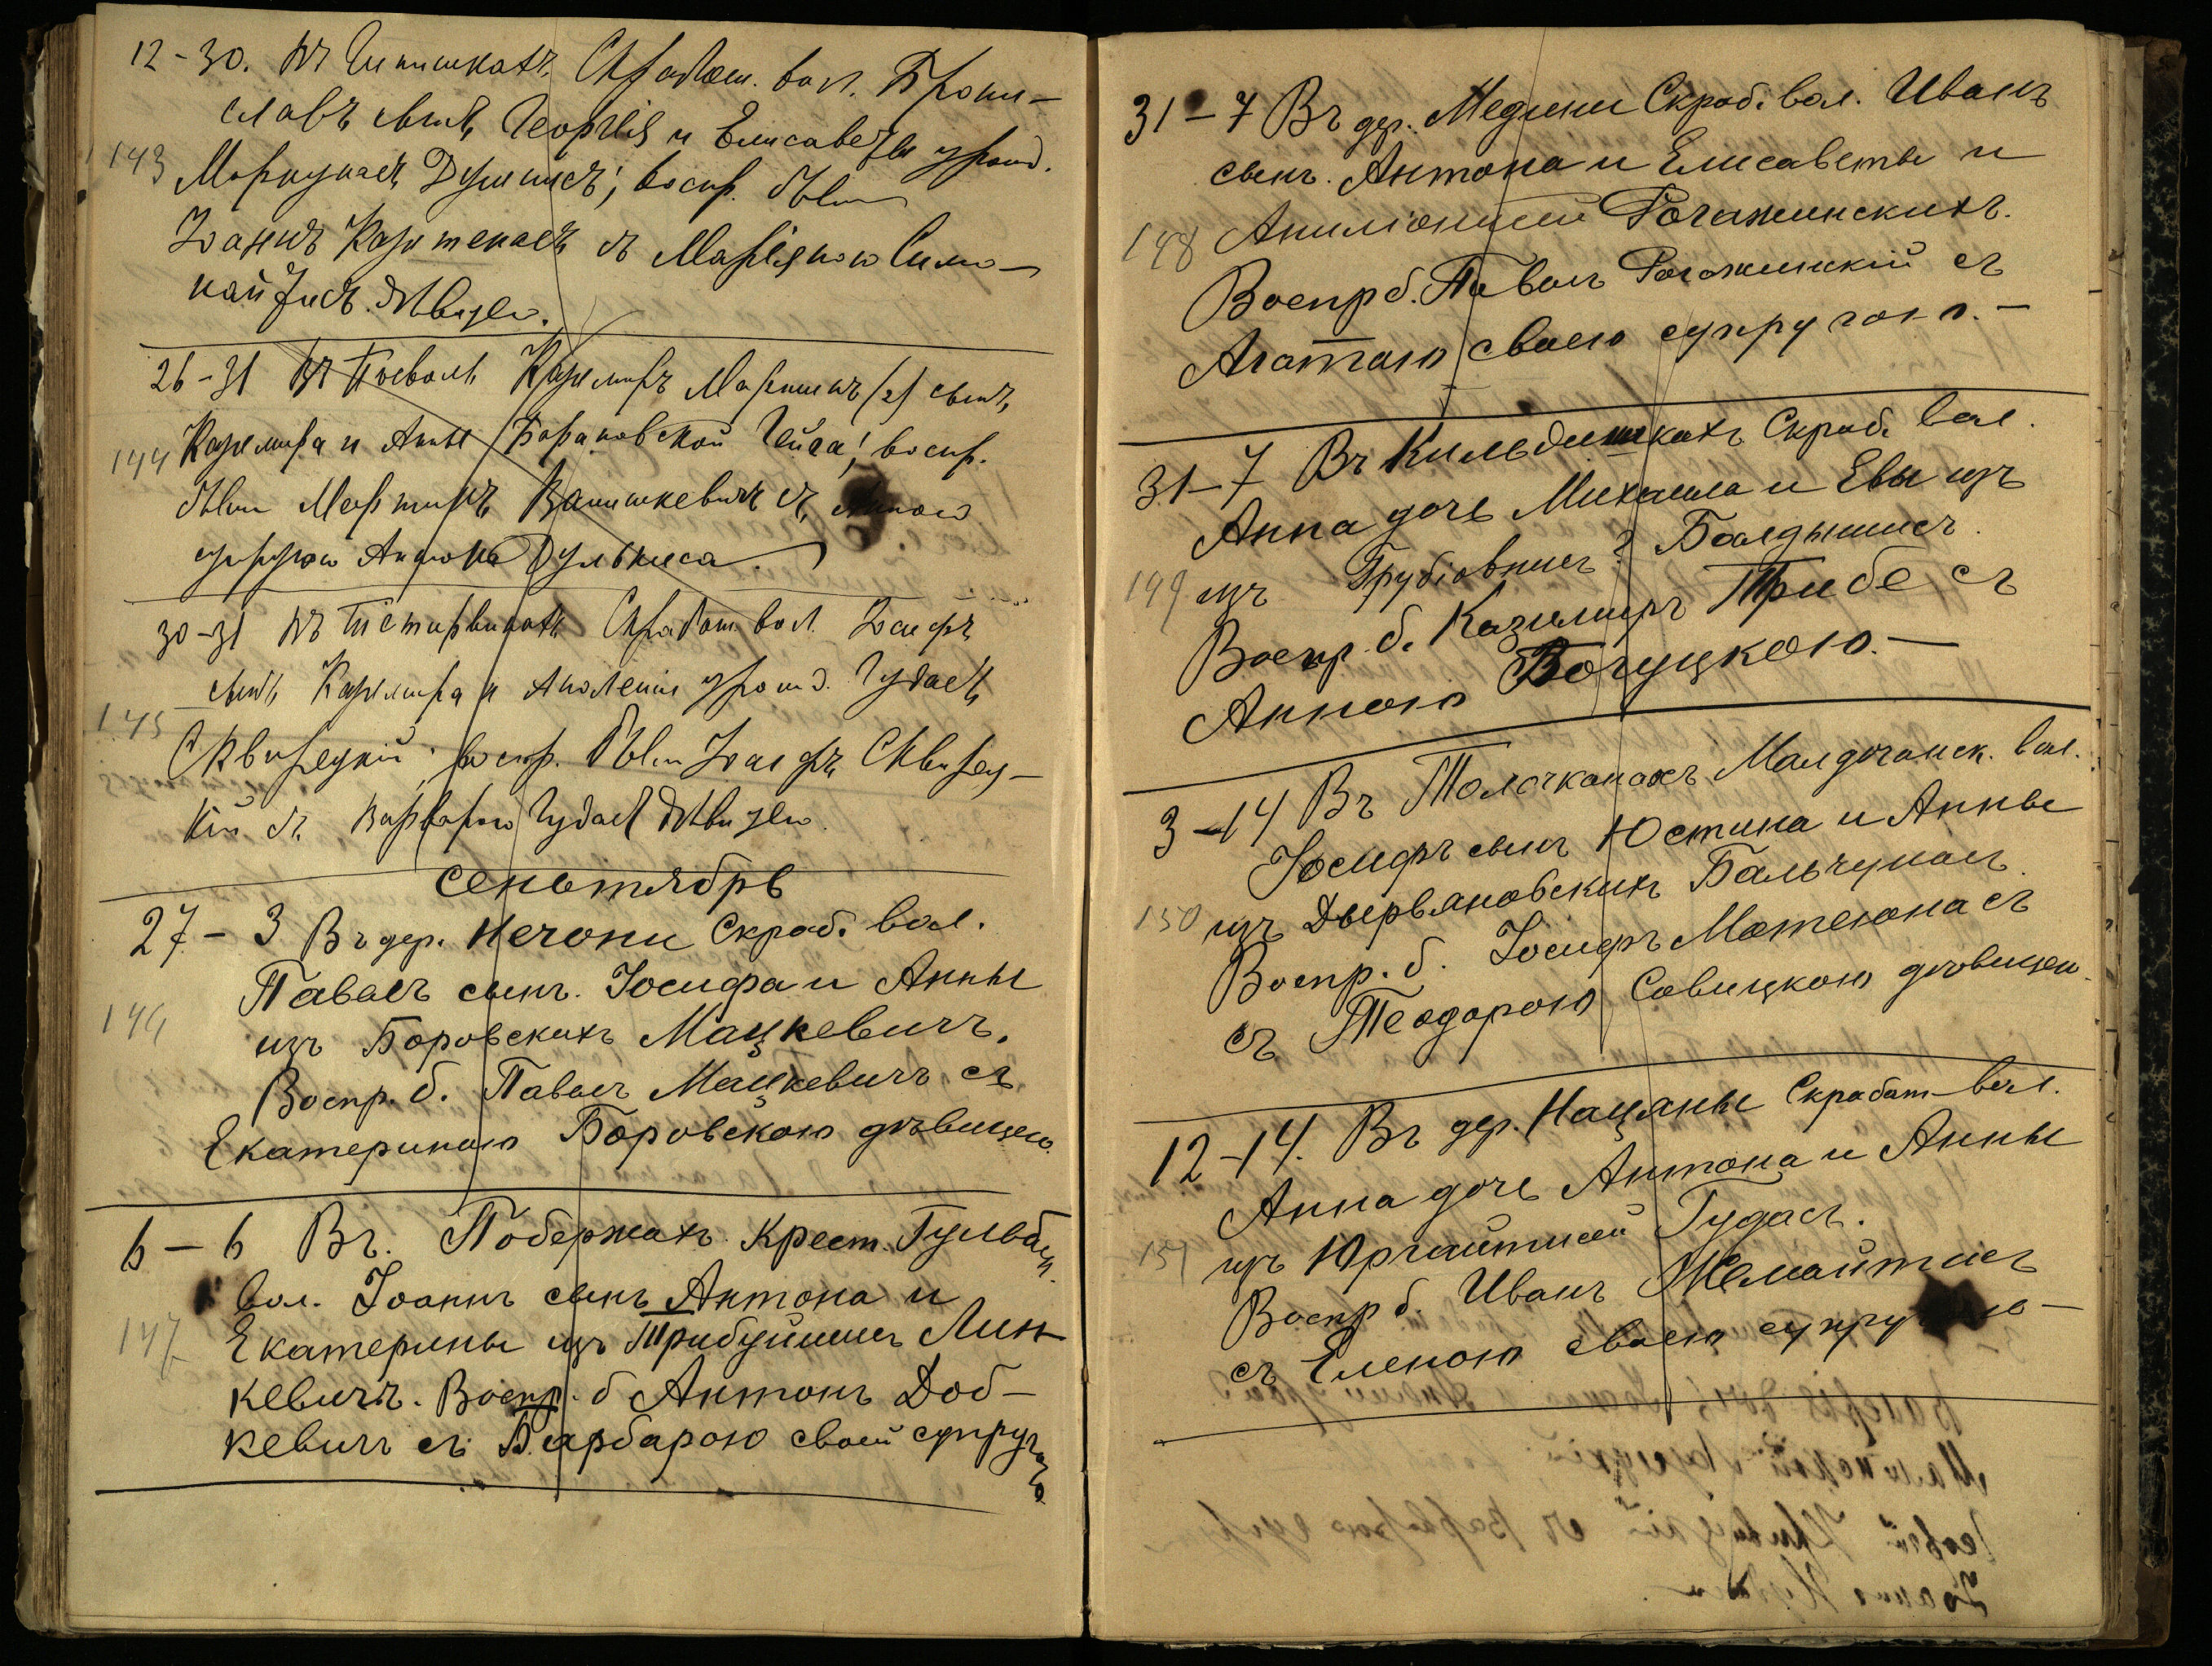 12-30. Въ Скработ. вол. Брони-
славъ сынъ Георгія и Елисаветы урожд.
143
воспр. были
Іоаннъ съ Маріянною Симо-
дѣвицею.
26-31 Въ Казимиръ Мартинъ (2) сынъ
144 Казимира и Анны Барановской воспр.
были Мартинъ съ Анною
супругою Антона Дулькиса.
30-31 Въ Скработ. вол. Іосифъ
сынъ Казимира и Аполеніи урожд. Гудасъ
145
Сквирецкій; воспр. были Іосифъ Сквирец-
кій съ Варварою Гудасъ дѣвицею.
Сеньтябрь
27-3 Въ дер. Нечони Скраб. вол.
Павелъ сынъ Іосифа и Анны
146
изъ Боровскихъ Мацкевичъ.
Воспр. б. Павелъ Мацкевичъ съ
Екатериною Боровскою дѣвицею.
6-6 Въ Побержахъ Крест. Гульбин.
вол. Іоаннъ сынъ Антона и
147 Екатерины изъ Трибуйшисъ Лин-
кевичъ. Воспр. б Антонъ Доб-
кевичъ съ Барбарою своей супругою
31-7 Въ дер. Медини Скраб. вол. Иванъ
сынъ Антона и Елисаветы и
148 Рогажинскихъ.
Воспр б. Павелъ Рогожинскій съ
Агатою своею супругою.-
31-7 Въ Кильдишкахъ Скраб. вол.
Анна дочь Михаила и Евы изъ
149 изъ Грубіовнисъ? Балдышисъ.
Воспр. б. Казимиръ Трибе съ
Анною Богуцкою.-
3-14 Въ Толочканахъ Малдочанск. вол.
Іосифъ сынъ Юстина и Анны
150 изъ Двервяновскихъ Бальчунасъ.
Воспр. б. Іосифъ Матеюнасъ
съ Теодорою Савицкою дѣвицею.
12-14. Въ дер. Нацяны Скработ-вол.
Анна дочь Антона и Анны
151 изъ Юргайтисей Гудасъ.
Воспр б. Иванъ Жемайтисъ
съ Еленою своею супругою-